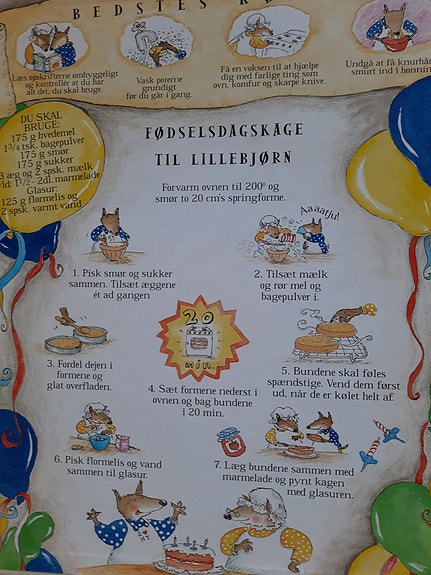 BEDSTES
Læs opskrifterne omhyggeligt
og kontrollér at du har
alt det, du skal bruge.
Vask poterne
grundigt
før du går i gang.
Få en voksen til at hjælpe
dig med farlige ting som
ovn, komfur og skarpe knive.
Undgå at få knurhår
smurt ind i honnin
DU SKAL
BRUGE:
175 g hvedemel
1 3/4 tsk. bagepulver
175 g smør
175 g sukker
3 æg og 2 spsk. mælk
ld: 1 1/2 - 2dl. marmelade
Glasur:
125 g flormelis og
2 spsk. varmt vand.
FØDSELSDAGSKAGE
TIL LILLEBJØRN
Forvarm ovnen til 200° og
smør to 20 cm's springforme.
Aaaatju!
1. Pisk smør og sukker
sammen. Tilsæt æggene
ét ad gangen
2. Tilsæt mælk
og rør mel og
bagepulver i.
3. Fordel dejen i
formene og
glat overfladen.
20
min
4. Sæt formene nederst i
ovnen og bag bundene
i 20 min.
5. Bundene skal føles
spændstige. Vend dem først
ud, når de er kølet helt af.
6. Pisk flormelis og vand
sammen til glasur.
7. Læg bundene sammen med
marmelade og pynt kagen
med glasuren.